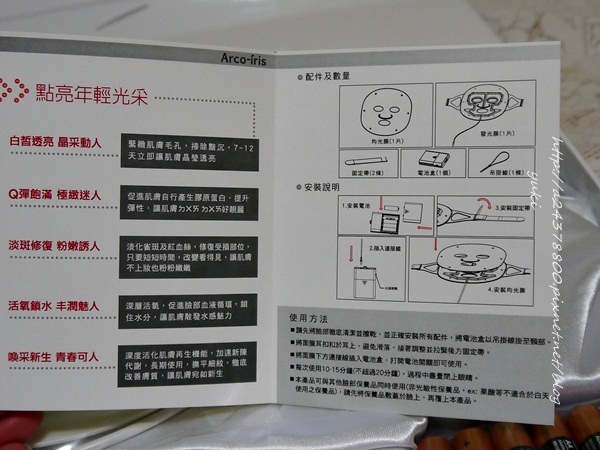 Arco-iris
點亮年輕光采
白皙透亮 晶采動人
緊緻肌膚毛孔,掃除黯沉,7-12
天立即讓肌膚晶瑩透亮
Q彈飽滿 極緻迷人
促進肌膚自行產生膠原蛋白,提升
彈性,讓肌膚ㄉㄨㄞ ㄉㄨㄞ好靚麗
淡斑修復 粉嫩誘人
淡化雀斑及紅血絲,修復受損部位,
只要短短時間,改變看得見,讓肌膚
不上妝也粉粉嫩嫩
活氧鎖水 丰潤魅人
深層活氧,促進臉部血液循環,鎖
住水分,讓肌膚散發水感魅力
喚采新生 青春可人
深度活化肌膚再生機能,加速新陳
代謝,長期使用,撫平細紋,徹底
改善膚質,讓肌膚宛如新生
配件及數量
均光膜(1片)
發光膜(1片)
固定帶(2條)
電池盒(1個)
吊掛線(1條)
安裝說明
1.安裝電池
3.安裝固定帶
2.插入連接線
4.安裝均光膜
使用方法
■請先將臉部徹底清潔並擦乾,並正確安裝所有配件,將電池盒以吊掛線掛至頸部。
■將面膜耳扣扣於耳上,避免滑落,接著調整並拉緊後方固定帶。
■將面膜下方連接線插入電池盒,打開電池開關即可使用。
■每次使用10-15分鐘(不超過20分鐘),過程中盡量閉上眼睛。
■本產品可與其他臉部保養品同時使用(非光敏性保養品,ex: 果酸等不適合於白天
使用之保養品),請先將保養品敷蓋於臉上,再覆上本產品。
yuki
http://a24378800.pixnet.net/blog